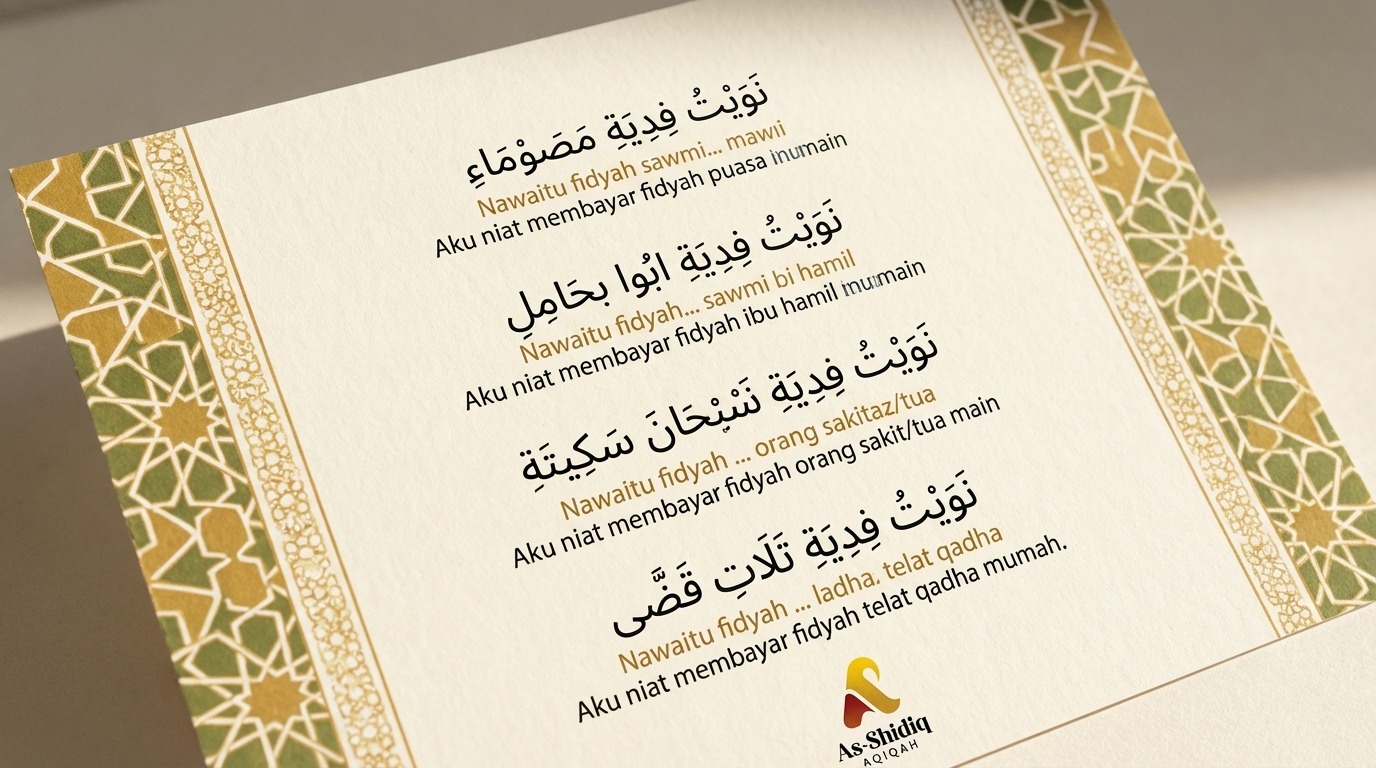 نَوَيْتُ فِدِيَةِ مَصَوْمَاءِ
Nawaitu fidyah sawmi... mawii
Aku niat membayar fidyah puasa inumain
نَوَيْتُ فِدِيَةِ ابُوا بحَامِلِ
Nawaitu fidyah... sawmi bi hamil
Aku niat membayar fidyah ibu hamil
نَوَيْتُ فِدِيَةِ سَكِيتَةِ
Nawaitu fidyah ... orang sakitaz/tua
Aku niat membayar fidyah orang sakit/tua main
نَوَيْتُ فِدِيَةِ تَلَاتِ قَضَّى
Nawaitu fidyah ... ladha. telat qadha
Aku niat membayar fidyah telat qadha mumah.
As-Shidiq
AQIQAH